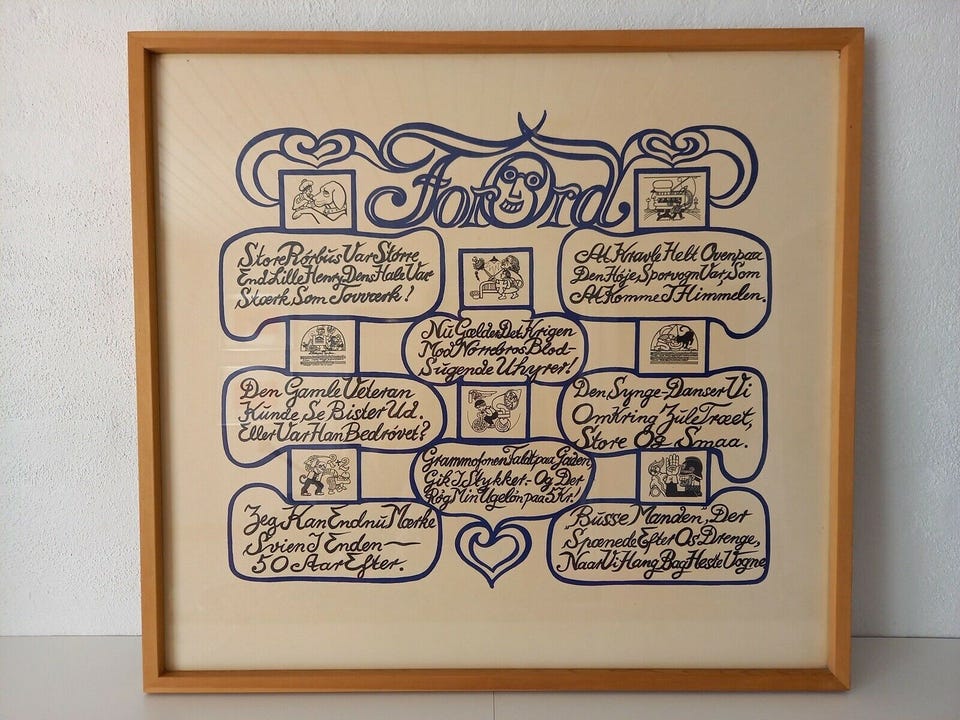 ForOrd
Store Rørbus Var Större
End Lille Henry, Dens Hale Var
Stærk, Som Tovværk!
At Kravle Helt Ovenpaa
Den Høje, Sporvogn Var, Som
At Komme I Himmelen.
Nu Gælder Det Krigen
Mod Nørrebros Blod-
Sugende Uhyrer!
Den Gamle Veteran
Kunde, Se Bister Ud.
Eller Var Han Bedrøvet?
Den, Synge-Danser Vi
Omkring JuleTræet,
Store Og Smaa.
Grammofonen Faldt paa Gaden,
Gik I Stykker.- Og Der
Røg Min Ugeløn paa 5 Kr!
Jeg Kan Endnu Mærke
Svien I Enden —
50 Aar Efter.
"Busse Manden", Der
Spænede Efter Os Drenge,
Naar Vi Hang Bag Heste Vogne